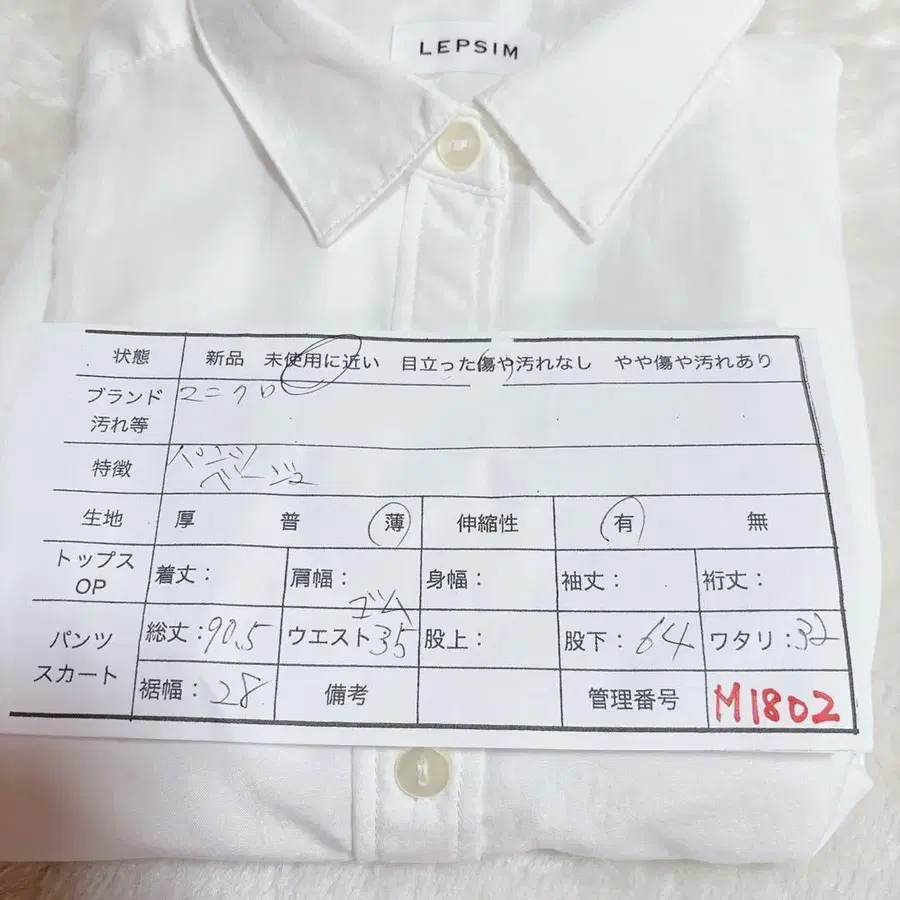 LEPSIM
状態 新品 未使用に近い 目立った傷や汚れなし やや傷や汚れあり
ブランド ユニクロ
汚れ等
特徴 パンツ
ベージュ
生地 厚 普 薄 伸縮性 有 無
トップス
OP 着丈: 肩幅: 身幅: 袖丈: 裄丈:
ゴム
パンツ
スカート 総丈:90.5 ウエスト35 股上: 股下:64 ワタリ:32
裾幅:28 備考 管理番号 M1802